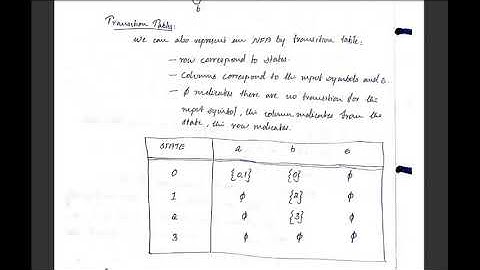 b
Transition Table:
We can also represent an NFA by transition table:
- row correspond to states.
- columns correspond to the input symbols and ε.
- ϕ indicates there are no transition for the
input symbol, the column indicates from the
state, the row indicates.
STATE a b ε
0 {0,1} {0} ϕ
1 ϕ {2} ϕ
2 ϕ {3} ϕ
3 ϕ ϕ ϕ